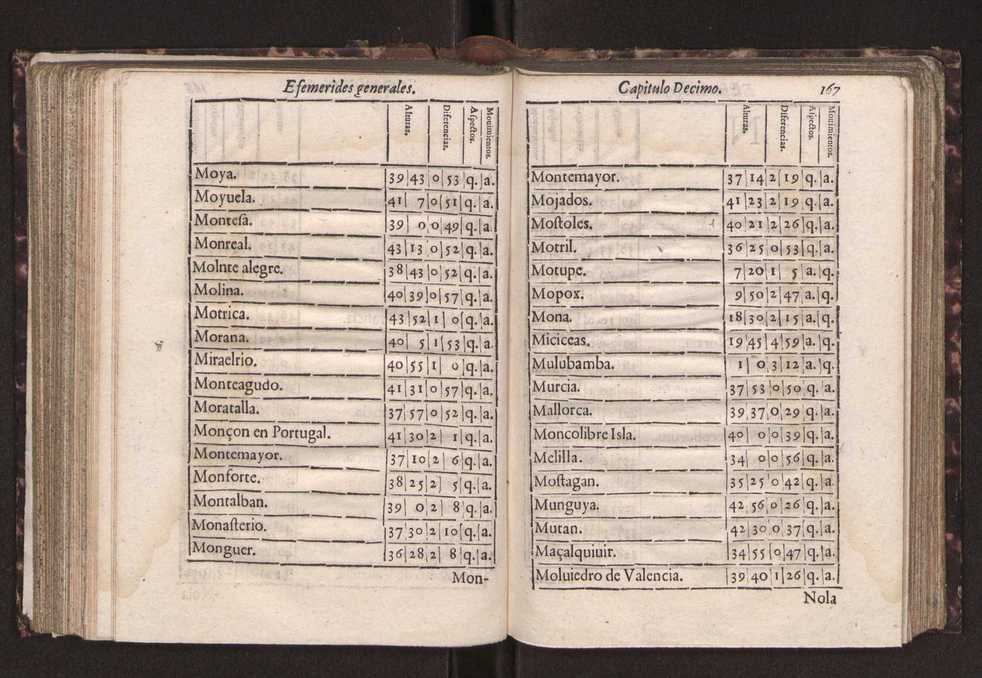 Efemerides generales.
Alturas. Diferencias. Aspectos. Mouimientos.
Moya. 39 43 0 53 q. a.
Moyuela. 41 7 0 51 q. a.
Montesa. 39 0 0 49 q. a.
Monreal. 43 13 0 52 q. a.
Molnte alegre. 38 43 0 52 q. a.
Molina. 40 39 0 57 q. a.
Motrica. 43 52 1 0 q. a.
Morana. 40 5 1 53 q. a.
Miraelrio. 40 55 1 0 q. a.
Monteagudo. 41 31 0 57 q. a.
Moratalla. 37 57 0 52 q. a.
Monçon en Portugal. 41 30 2 1 q. a.
Montemayor. 37 10 2 6 q. a.
Monforte. 38 25 2 5 q. a.
Montalban. 39 0 2 8 q. a.
Monasterio. 37 30 2 10 q. a.
Monguer. 36 28 2 8 q. a.
Mon-
Capitulo Decimo. 167
Alturas. Diferencias. Aspectos. Mouimientos.
Montemayor. 37 14 2 19 q. a.
Mojados. 41 23 2 19 q. a.
Mostoles. 40 21 2 26 q. a.
Motril. 36 25 0 53 q. a.
Motupe. 7 20 1 5 a. q.
Mopox. 9 50 2 47 a. q.
Mona. 18 30 2 15 a. q.
Miciceas. 19 45 4 59 a. q.
Mulubamba. 1 0 3 12 a. q.
Murcia. 37 53 0 50 q. a.
Mallorca. 39 37 0 29 q. a.
Moncolibre Isla. 40 0 0 39 q. a.
Melilla. 34 0 0 56 q. a.
Mostagan. 35 25 0 42 q. a.
Munguya. 42 56 0 26 q. a.
Mutan. 42 30 0 37 q. a.
Maçalquiuir. 34 55 0 47 q. a.
Moluiedro de Valencia. 39 40 1 26 q. a.
Nola